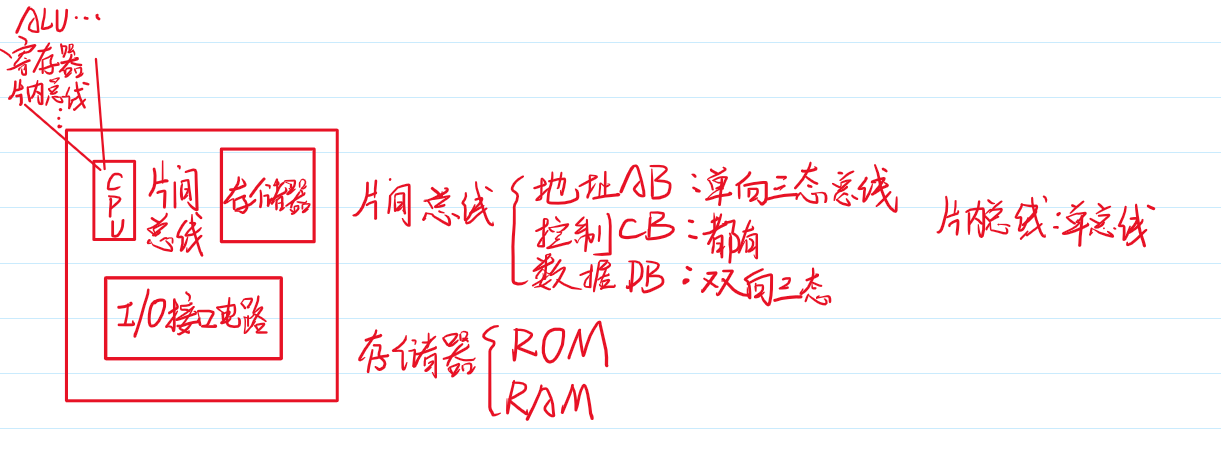 ALU…
寄存器
片内总线
…
CPU
片间
总线
存储器
I/O接口电路
片间总线
地址AB:单向三态总线
控制CB:都有
数据DB:双向三态
片内总线:单总线
存储器
ROM
RAM